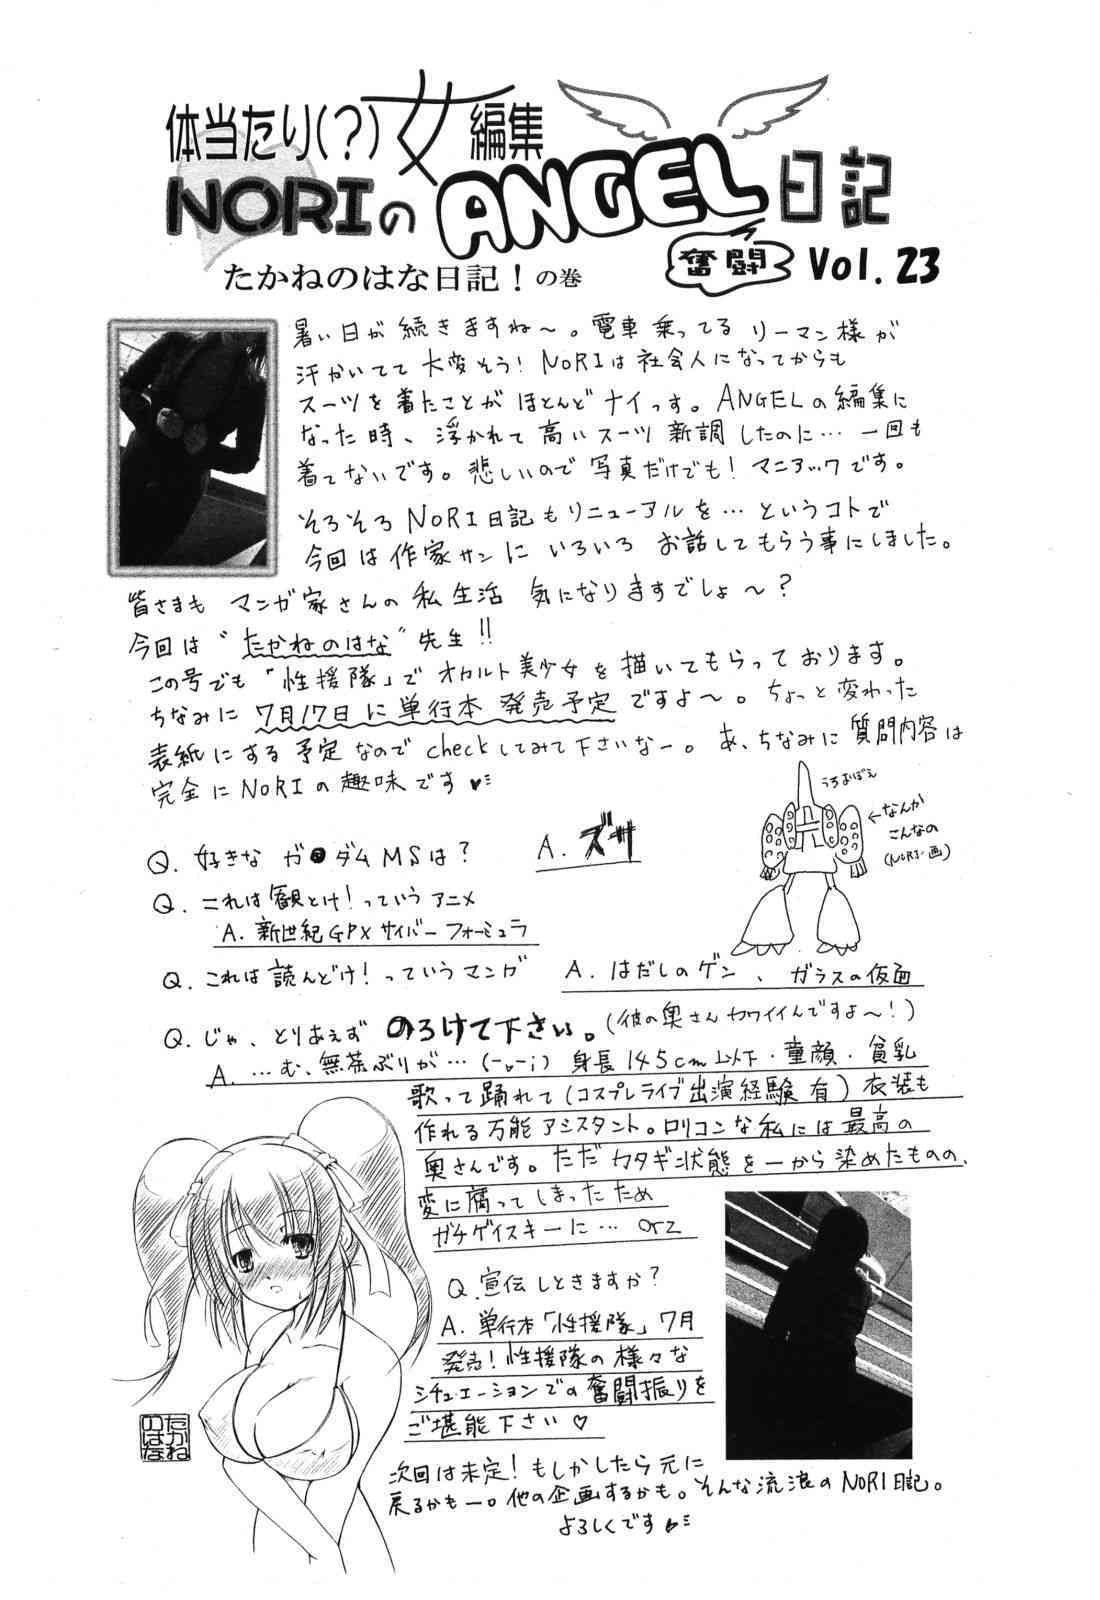 体当たり(?)女編集
NORIのANGEL日記
奮闘
Vol. 23
たかねのはな日記！の巻
暑い日が続きますね〜。電車乗ってるリーマン様が
汗かいてて大変そう！NORIは社会人になってからも
スーツを着たことがほとんどナイっす。ANGELの編集に
なった時、浮かれて高いスーツ新調したのに…一回も
着てないです。悲しいので写真だけでも！マニアックです。
そろそろNORI日記もリニューアルを…というコトで
今回は作家サンにいろいろお話してもらう事にしました。
皆さまもマンガ家さんの私生活気になりますでしょ〜？
今回は"たかねのはな"先生!!
この号でも「性援隊」でオカルト美少女を描いてもらっております。
ちなみに7月17日に単行本発売予定ですよ〜。ちょっと変わった
表紙にする予定なのでcheckしてみて下さいなー。あ、ちなみに質問内容は
完全にNORIの趣味です♥
うろおぼえ
←なんか
こんなの
(NORI・画)
Q. 好きなガ●ダムMSは？
A. ズサ
Q. これは観とけ！っていうアニメ
A. 新世紀GPXサイバーフォーミュラ
Q. これは読んどけ！っていうマンガ
A. はだしのゲン、ガラスの仮面
Q. じゃ、とりあえずのろけて下さい。(彼の奥さんカワイイんですよ〜！)
A. …む、無茶ぶりが…(-o-;) 身長145cm以下・童顔・貧乳
歌って踊れて(コスプレライブ出演経験有)衣装も
作れる万能アシスタント。ロリコンな私には最高の
奥さんです。ただカタギ状態を一から染めたものの、
変に腐ってしまったため
ガチゲイスキーに…orz
Q. 宣伝しときますか？
A. 単行本「性援隊」7月
発売！性援隊の様々な
シチュエーションでの奮闘振りを
ご堪能下さい♡
たかね
のはな
次回は未定！もしかしたら元に
戻るかもー。他の企画するかも。そんな流浪のNORI日記。
よろしくです♥